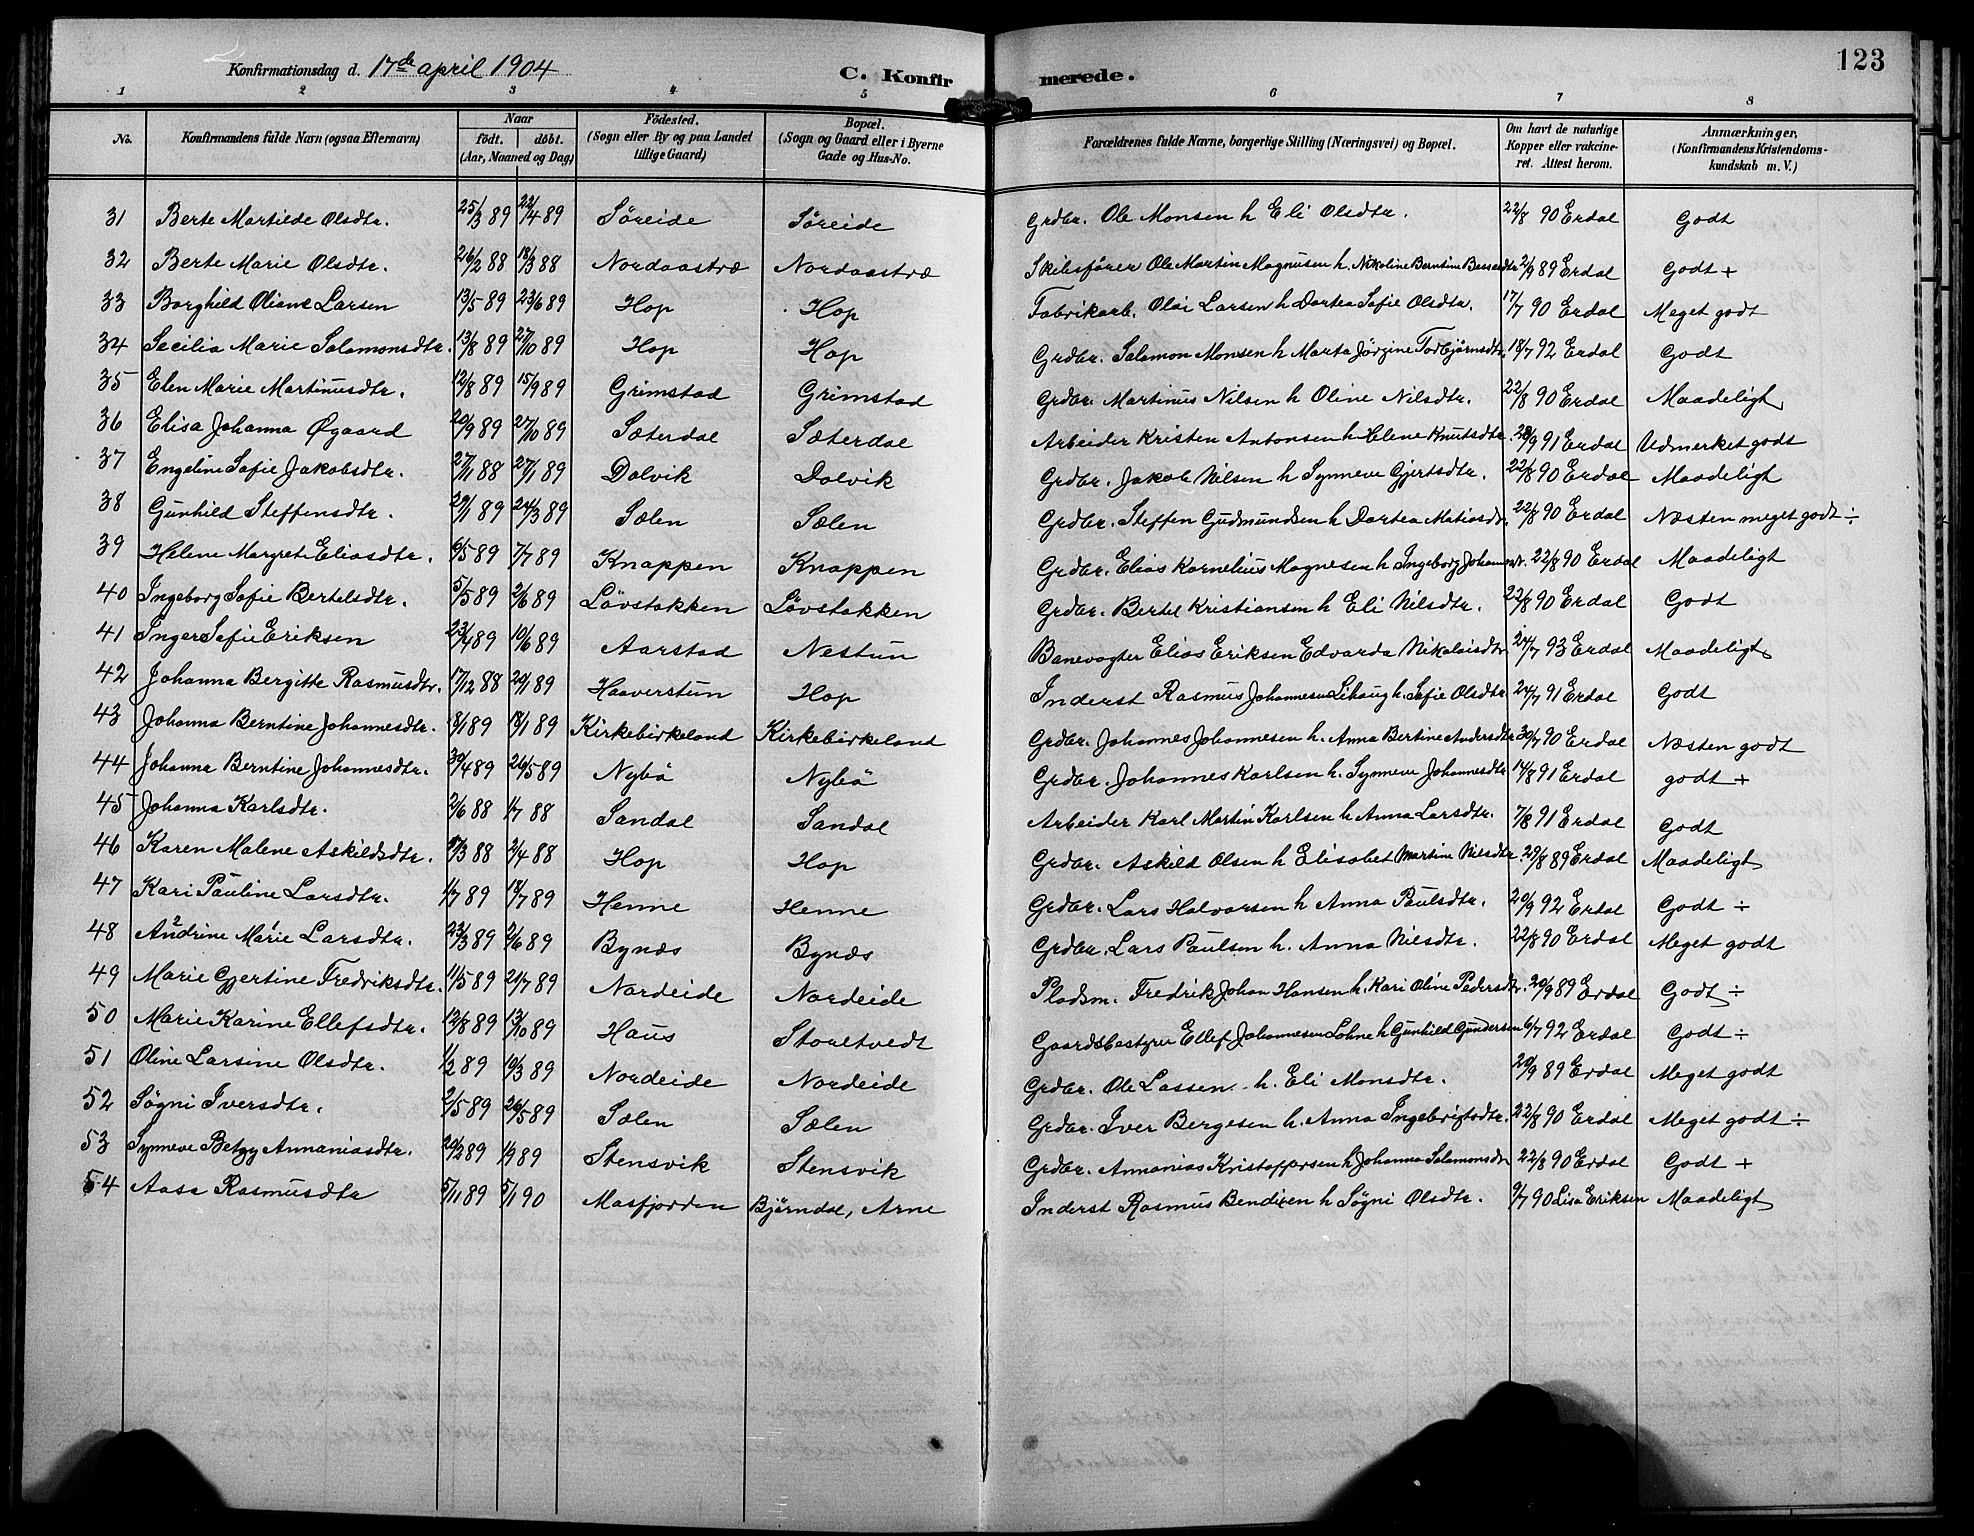 Konfirmationsdag d. 17de april 1904 C. Konfirmerede. 123
1 2 3 4 5 6 7 8
No. Konfirmandens fulde Navn (ogsaa Efternavn) Naar født. døbt. (Aar, Maaned og Dag) Fødested. (Sogn eller By og paa Landet tillige Gaard) Bopæl. (Sogn og Gaard eller i Byerne Gade og Hus-No. Forældrenes fulde Navne, borgerlige Stilling (Næringsvei) og Bopæl. Om havt de naturlige Kopper eller vakcineret. Attest herom. Anmærkninger, (Konfirmandens Kristendomskundskab m. V.)
31 Berte Martilde Olsdtr. 25/3 89 22/4 89 Søreide Søreide Grdbr. Ole Monsen h Eli Olsdtr. 22/8 90 Erdal Godt
32 Berte Marie Olsdtr. 26/2 88 18/3 88 Nordaastræ Nordaastræ Skibsfører Ole Martin Magnusen h. Nikoline Berntine 2/9 89 Erdal Godt +
33 Borghild Oliane Larsen 13/5 89 23/6 89 Hop Hop Fabrikarb. Olai Larsen h Dortea Sofie Olsdtr. 17/7 90 Erdal Meget godt
34 Secilia Marie Salamonsdtr. 13/8 89 27/10 89 Hop Hop Grdbr. Salamon Monsen h Marta Jörgine Torbjørnsdtr. 18/7 92 Erdal Godt
35 Elen Marie Martinusdtr. 12/8 89 15/9 89 Grimstad Grimstad Grdbr. Martinus Nilsen h Oline Nilsdtr. 22/8 90 Erdal Maadeligt
36 Elisa Johanna Øgaard 20/9 89 27/10 89 Sæterdal Sæterdal Arbeider Kristen Antonsen h Helene Knutsdtr. 28/9 91 Erdal Udmerket godt
37 Engeline Sofie Jakobsdtr. 27/11 88 27/1 89 Dolvik Dolvik Grdbr. Jakob Nilsen h Synneve Gjertsdtr. 22/8 90 Erdal Maadeligt
38 Gunhild Steffensdtr. 29/1 89 24/3 89 Sælen Sælen Grdbr. Steffen Gudmundsen h Dortea Matiasdtr. 22/8 90 Erdal Næsten meget godt ÷
39 Helene Margrete Eliasdtr. 6/5 89 7/7 89 Knappen Knappen Grdbr. Elias Kornelius Magnesen h Ingeborg 22/8 90 Erdal Maadeligt
40 Ingeborg Sofie Bertelsdtr. 5/5 89 2/6 89 Lövstakken Lövstakken Grdbr. Bertel Kristiansen h Eli Nilsdtr. 22/8 90 Erdal Godt
41 Inger Sofie Eriksen 23/4 89 10/6 89 Aarstad Nestun Banevogter Elias Eriksen Edvarda Nikolaisdtr 24/7 93 Erdal Maadeligt
42 Johanna Bergitte Rasmusdtr. 17/12 88 20/1 89 Haaverstun Hop Inderst Rasmus Johannesen Lihaug h. Sofie Olsdtr. 24/7 91 Erdal Godt
43 Johanna Berntine Johannesdtr. 8/1 89 18/1 89 Kirkebirkeland Kirkebirkeland Grdbr. Johannes Johannesen h. Anna Bertine Andersdtr 30/7 90 Erdal Næsten godt
44 Johanna Berntine Johannesdtr. 30/4 89 26/5 89 Nybö Nybö Grdbr. Johannes Karlsen h. Synneve Johannesdtr 14/8 91 Erdal godt +
45 Johanna Karlsdtr. 2/6 88 1/7 88 Sandal Sandal Arbeider Karl Martin Karlsen h Anna Larsdtr. 7/8 91 Erdal Godt
46 Karen Malene Askildsdtr. 17/3 88 2/4 88 Hop Hop Grdbr. Askild Olsen h Elisabet Martine Nilsdtr. 29/8 89 Erdal Maadeligt
47 Kari Pauline Larsdtr. 1/7 89 18/7 89 Henne Henne Grdbr. Lars Halvorsen h Anna Paulsdtr. 20/9 92 Erdal Godt ÷
48 Andrine Marie Larsdtr. 23/3 89 2/6 89 Bynæs Bynæs Grdbr. Lars Paulsen h. Anna Nilsdtr. 22/8 90 Erdal Meget godt
49 Marie Gjertine Fredriksdtr. 11/5 89 21/7 89 Nordeide Nordeide Pladsm. Fredrik Johan Hansen h. Kari Oline Pedersdtr. 20/9 89 Erdal Godt ÷
50 Marie Karine Ellefsdtr. 12/8 89 13/10 89 Haus Storetvedt Gaardsbestyrer Ellef Johannesen Lohne h Gunhild Gundersen 6/7 92 Erdal Godt ÷
51 Oline Larsine Olsdtr. 1/2 89 10/3 89 Nordeide Nordeide Grdbr. Ole Lassen h. Eli Monsdtr. 20/9 89 Erdal Meget godt
52 Søgni Iversdtr. 2/5 89 26/5 89 Sælen Sælen Grdbr. Iver Bergesen h. Anna Ingebrigtsdtr. 22/8 90 Erdal Meget godt ÷
53 Synneve Betzy Annaniasdtr. 20/2 89 1/9 89 Stensvik Stensvik Grdbr. Annanias Kristoffersen h Johanna Salamonsdtr 22/8 90 Erdal Godt +
54 Aasa Rasmusdtr 5/11 89 5/1 90 Masfjorden Bjørndal, Arne Inderst Rasmus Bendixen h Søgni Olsdtr. 9/7 90 Lisa Eriksen Maadeligt